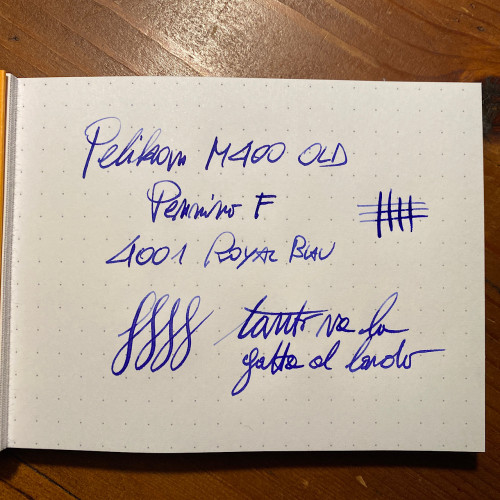 Pelikan M400 OLD
Pennino F
4001 ROYAL BLAU
tanto va la
gatta al lardo